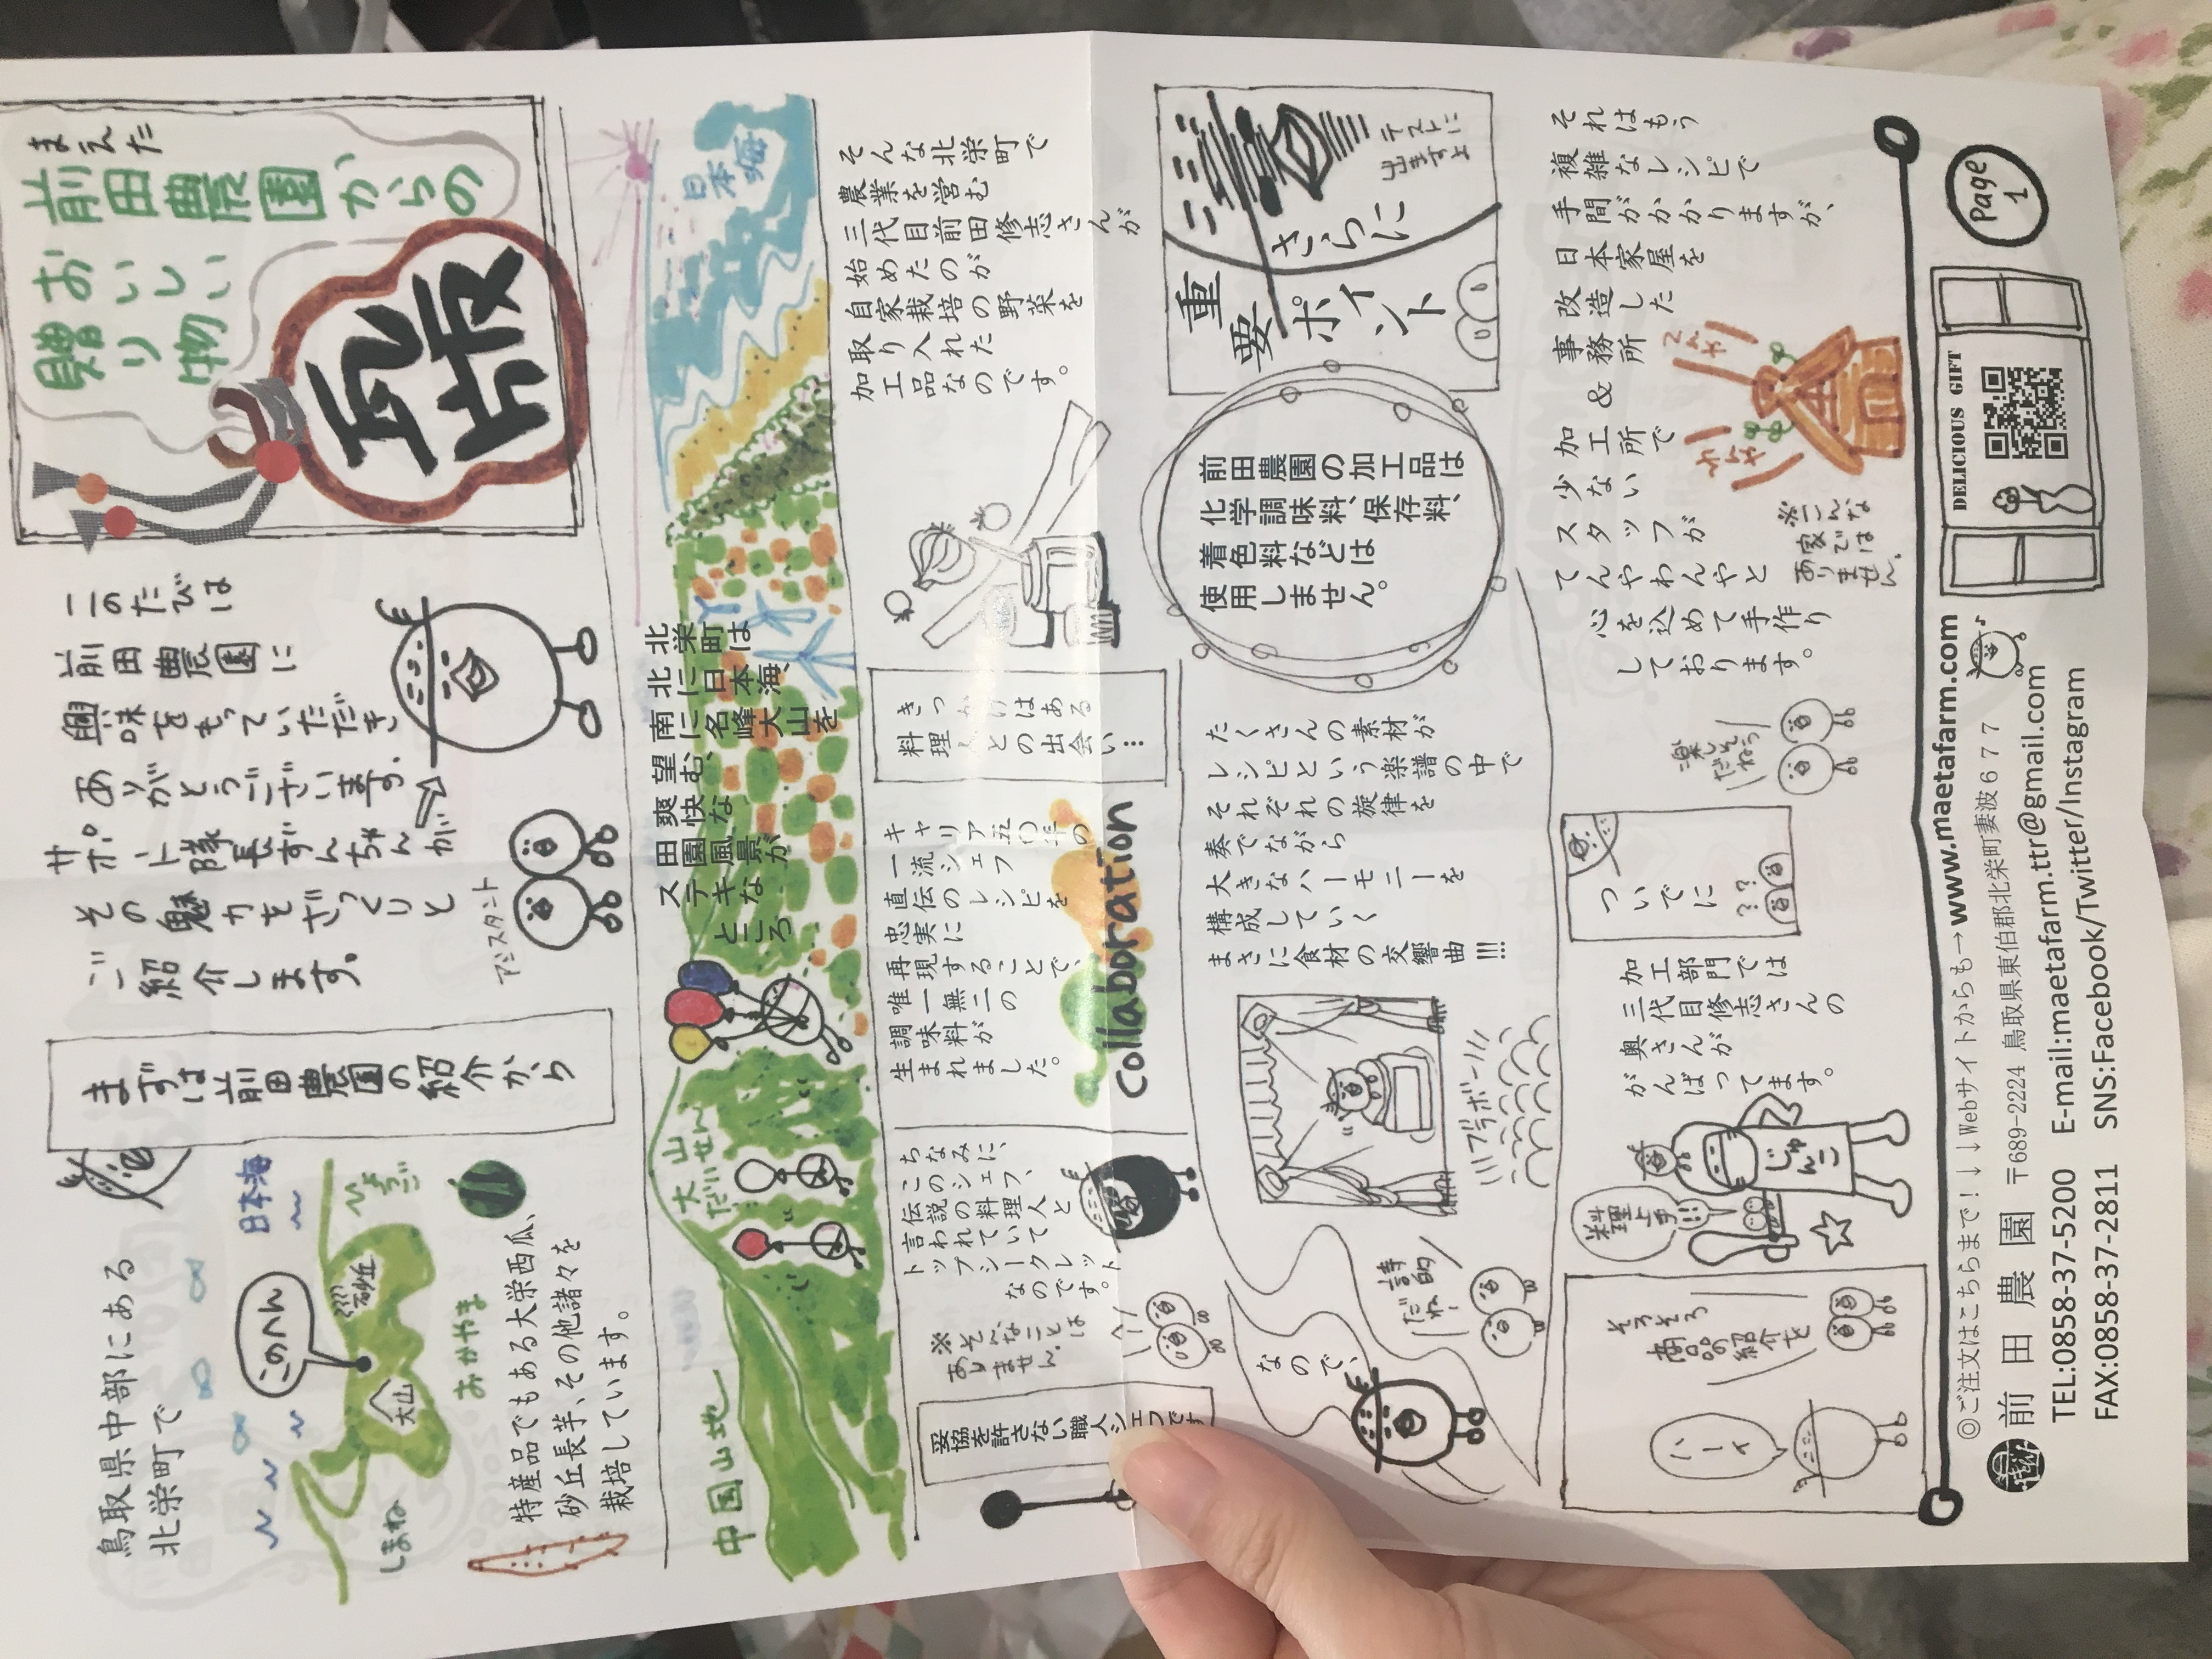 まえた
前田農園からの
おいしい
贈り物
前田
このたびは
前田農園に
興味をもっていただき
ありがとうございます。
サポート隊長ずんちゃんが
その魅力をざっくりと
ご紹介します。
アシスタント
まずは前田農園の紹介から
鳥取県中部にある
北栄町で
日本海
ひょうご
砂丘
このへん
大山
おかやま
しまね
特産品でもある大栄西瓜、
砂丘長芋、その他諸々を
栽培しています。
日本海
北栄町は
北に日本海、
南に名峰大山を
望む、
爽快な
田園風景が
ステキな
ところ
大山
だいせん
中国山地
そんな北栄町で
農業を営む
三代目前田修志さんが
始めたのが
自家栽培の野菜を
取り入れた
加工品なのです。
きっかけはある
料理人との出会い…
キャリア五〇年の
一流シェフ
直伝のレシピを
忠実に
再現することで、
唯一無二の
調味料が
生まれました。
collaboration
ちなみに、
このシェフ、
伝説の料理人と
言われていて
トップシークレット
なのです。
※そんなことは
ありません。
へー
妥協を許さない職人シェフです
テストに
出ますよ
さらに
重要ポイント
前田農園の加工品は
化学調味料、保存料、
着色料などは
使用しません。
たくさんの素材が
レシピという楽譜の中で
それぞれの旋律を
奏でながら
大きなハーモニーを
構成していく
まさに食材の交響曲!!!
ブラボー
詩的
だね!
なので、
それはもう
複雑なレシピで
手間がかかりますが、
日本家屋を
改造した
事務所&加工所で
少ない
スタッフが
てんやわんやと
心を込めて手作り
しております。
てんや
わんや
※こんな
お家では
ありません。
楽し
そう
だねっ
ついでに
??
加工部門では
三代目修志さんの
奥さんが
がんばってます。
料理上手
じゅんこ
そろそろ
商品の紹介を
ハーイ
Page
1
DELICIOUS GIFT
◎ご注文はこちらまで!↓↓Webサイトからも→www.maetafarm.com
前田農園 〒689-2224 鳥取県東伯郡北栄町妻波677
TEL:0858-37-5200 E-mail:maetafarm.ttr@gmail.com
FAX:0858-37-2811 SNS:Facebook/Twitter/Instagram